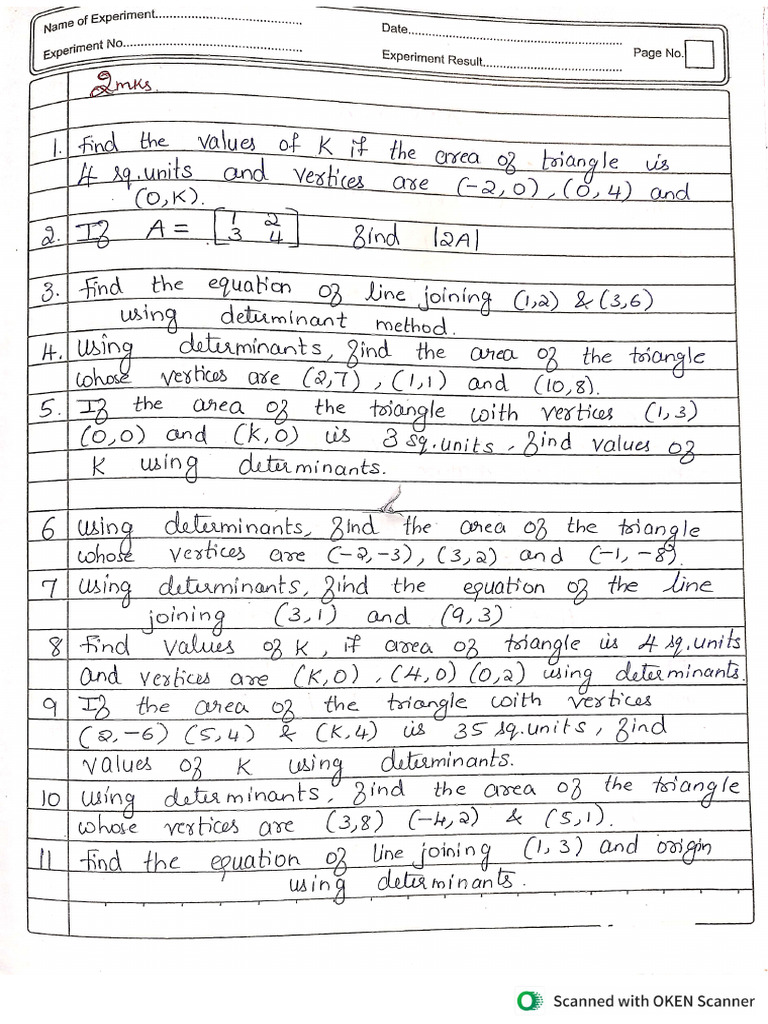 Name of Experiment............................................
Date.............................................................
Experiment No.................................................
Experiment Result........................................
Page No.
2mks.
1. Find the values of K if the area of triangle is
4 sq.units and vertices are (-2,0), (0,4) and
(0,K).
2. If A = [1 2
3 4] find |2A|
3. Find the equation of line joining (1,2) & (3,6)
using determinant method.
4. Using determinants, find the area of the triangle
whose vertices are (2,7), (1,1) and (10,8).
5. If the area of the triangle with vertices (1,3)
(0,0) and (K,0) is 3 sq.units. find values of
K using determinants.
6 Using determinants, find the area of the triangle
whose vertices are (-2,-3), (3,2) and (-1,-8).
7 Using determinants, find the equation of the line
joining (3,1) and (9,3)
8 Find values of K, if area of triangle is 4 sq.units
and vertices are (K,0), (4,0) (0,2) using determinants.
9 If the area of the triangle with vertices
(2,-6) (5,4) & (K,4) is 35 sq.units, find
values of K using determinants.
10 Using determinants, find the area of the triangle
whose vertices are (3,8) (-4,2) & (5,1).
11 Find the equation of line joining (1,3) and origin
using determinants.
Scanned with OKEN Scanner